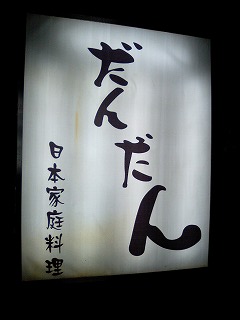 だんだん
日本家庭料理